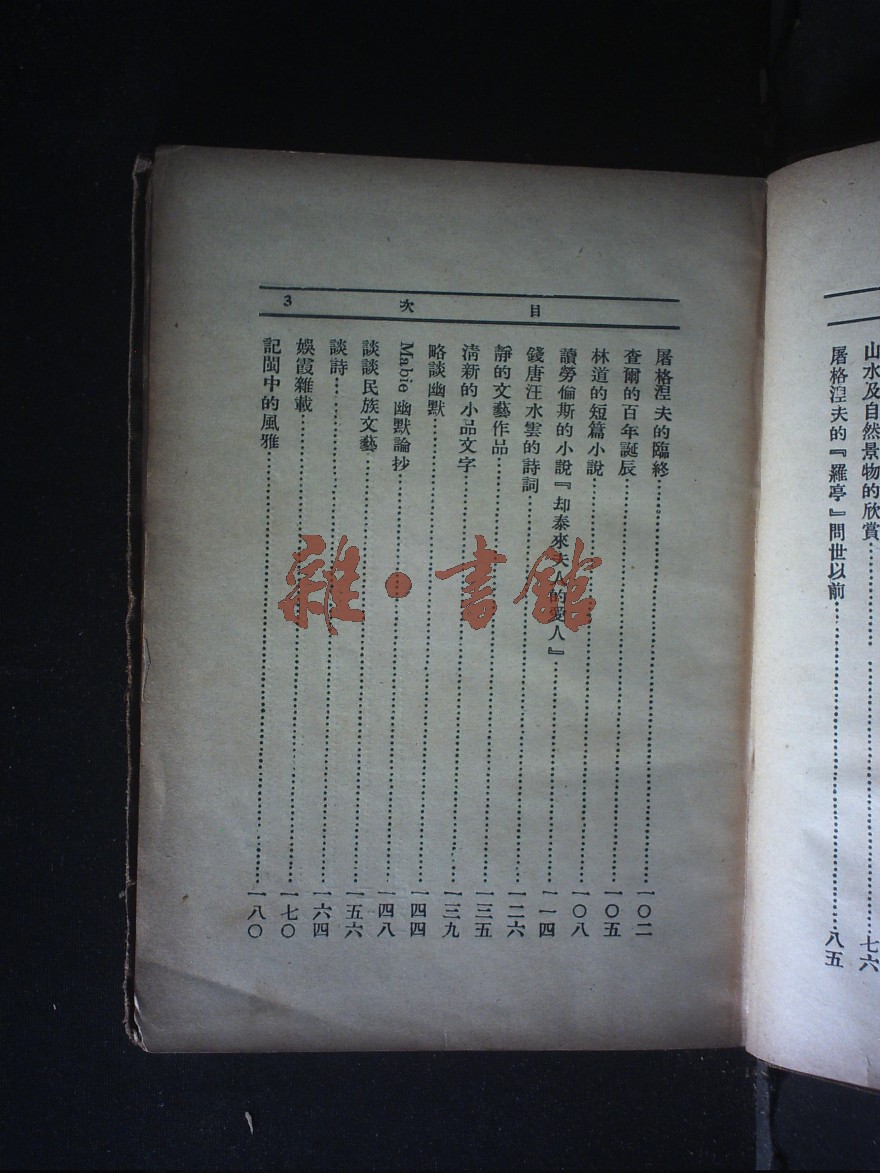 山水及自然景物的欣賞……七六
屠格涅夫的『羅亭』問世以前……八五
目次 3
屠格涅夫的臨終……一〇二
查爾的百年誕辰……一〇五
林道的短篇小說……一〇八
讀勞倫斯的小說『却泰來夫人的愛人』……一一四
錢唐汪水雲的詩詞……一二六
靜的文藝作品……一三五
淸新的小品文字……一三九
略談幽默……一四四
Mabie 幽默論抄……一四八
談談民族文藝……一五六
談詩……一六四
娛霞雜載……一七〇
記閩中的風雅……一八〇
雜·書館